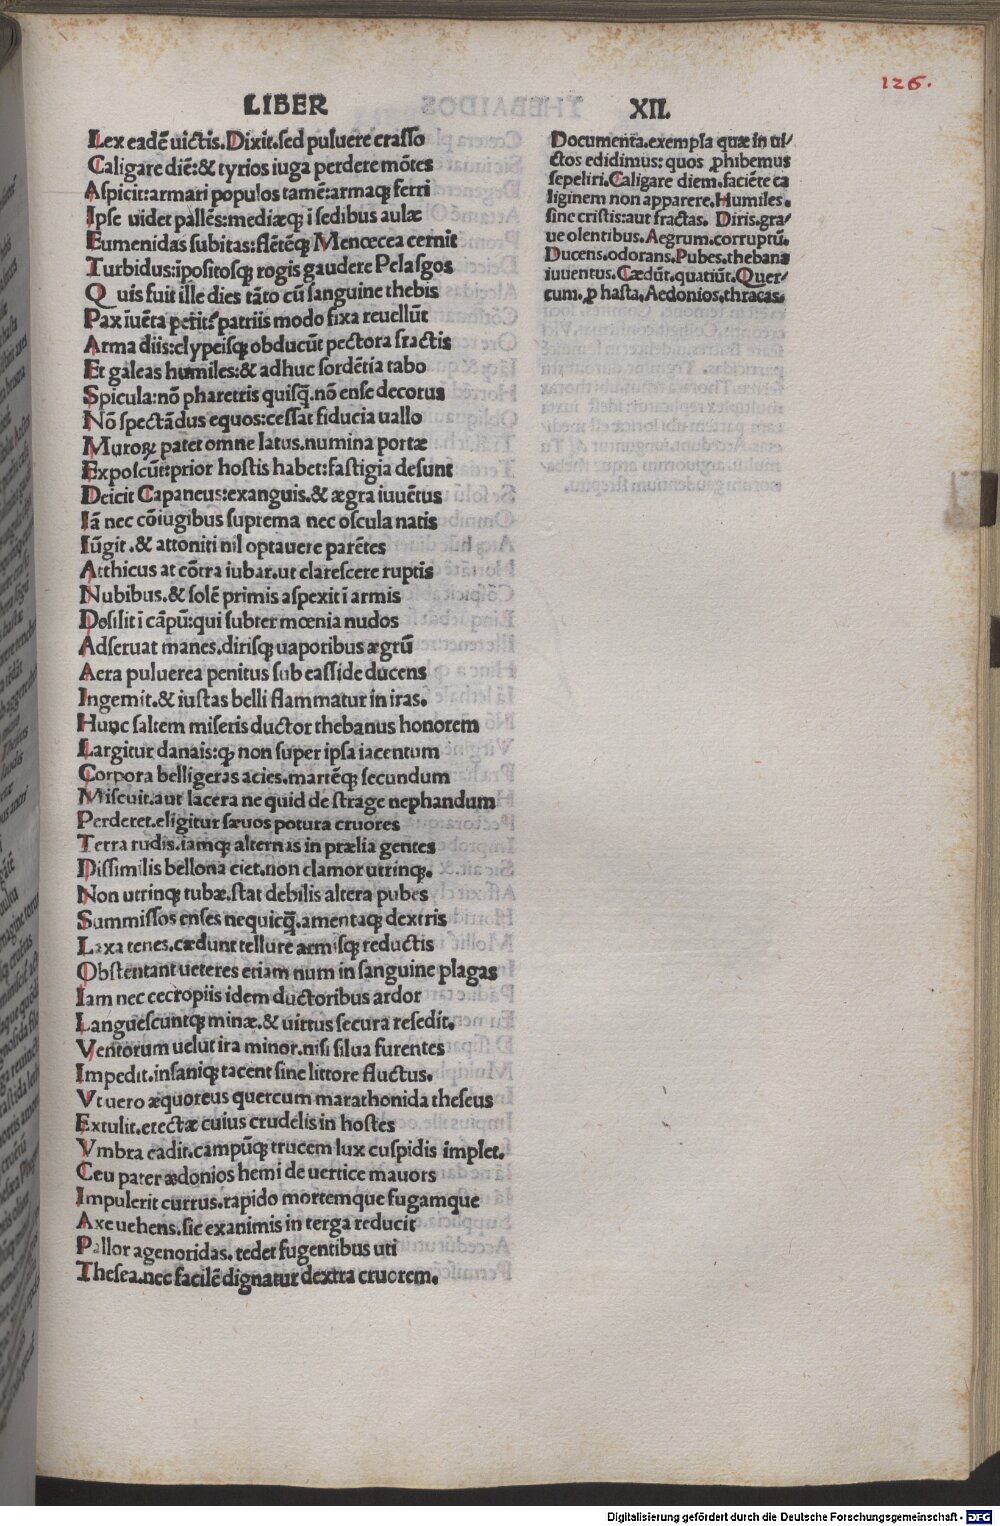 126.
LIBER XII.
Lex eadē uictis. Dixit. sed puluere crasso
Caligare diē: & tyrios iuga perdere mōtes
Aspicit: armari populos tamē: armaqꝫ ferri
Ipse uidet pallēs: mediæqꝫ ī sedibus aulæ
Eumenidas subitas: flētēqꝫ Menœcea cernit
Turbidus: īpositosqꝫ rogis gaudere Pelasgos
Quis fuit ille dies tāto cū sanguine thebis
Pax īuēta perit? patriis modo fixa reuellūt
Arma diis: clypeisqꝫ obducūt pectora fractis
Et galeas humiles: & adhuc sordētia tabo
Spicula: nō pharetris quisq̄. nō ense decorus
Nō spectādus equos: cessat fiducia uallo
Muroꝝ patet omne latus. numina portæ
Exposcūt: prior hostis habet: fastigia desunt
Deicit Capaneus: exanguis. & ægra iuuētus
Iā nec cōiugibus suprema nec oscula natis
Iūgit. & attoniti nil optauere parētes
Atthicus at cōtra iubar. ut clarescere ruptis
Nubibus. & solē primis aspexit ī armis
Desilit ī cāpū: qui subter mœnia nudos
Adseruat manes. dirisqꝫ uaporibus ægrū
Aera puluerea penitus sub casside ducens
Ingemit. & iustas belli flammatur in iras.
Hunc saltem miseris ductor thebanus honorem
Largitur danais: qꝫ non super ipsa iacentum
Corpora belligeras acies. martēqꝫ secundum
Miscuit. aut lacera ne quid de strage nephandum
Perderet. eligitur sæuos potura cruores
Terra rudis. iamqꝫ alternas in prælia gentes
Dissimilis bellona ciet. non clamor utrinqꝫ.
Non utrinqꝫ tubæ. stat debilis altera pubes
Summissos enses nequicq̄. amentaqꝫ dextris
Laxa tenes. cædunt tellure armisqꝫ reductis
Obstentant ueteres etiam num in sanguine plagas
Iam nec cecropiis idem ductoribus ardor
Languescuntqꝫ minæ. & uirtus secura resedit.
Ventorum uelut ira minor. nisi silua furentes
Impedit. insaniqꝫ tacent sine littore fluctus.
Vt uero æquoreus quercum marathonida theseus
Extulit. erectæ cuius crudelis in hostes
Vmbra cadit. campūqꝫ trucem lux cuspidis implet.
Ceu pater ædonios hemi de uertice mauors
Impulerit currus. rapido mortemque fugamque
Axe uehens. sic exanimis in terga reducit
Pallor agenoridas. tedet fugentibus uti
Thesea. nec facilē dignatur dextra cruorem.
Documenta. exempla quæ in ui/
ctos edidimus: quos ꝓhibemus
sepeliri. Caligare diem. faciēte ca
liginem non apparere. Humiles.
sine cristis: aut fractas. Diris. gra/
ue olentibus. Aegrum. corruptū.
Ducens. odorans. Pubes. thebana
iuuentus. Cædūt. quatiūt. Quer/
cum. ꝑ hasta. Aedonios. thracas.
Digitalisierung gefördert durch die Deutsche Forschungsgemeinschaft - DFG